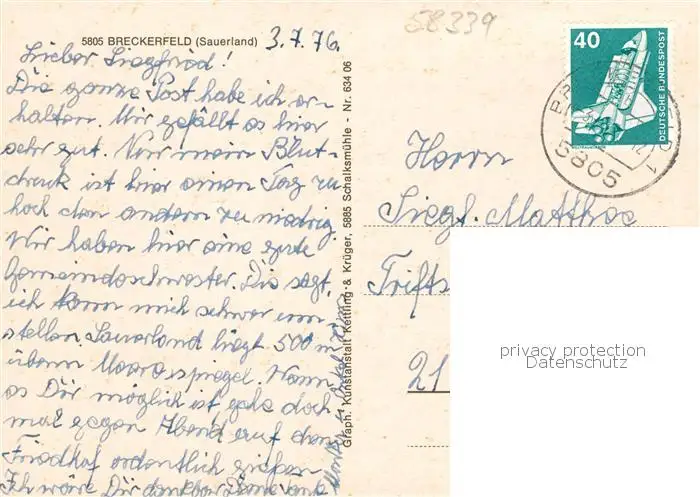 58339
5805 BRECKERFELD (Sauerland) 3.7.76
Lieber Siegfried!
Die ganze Post habe ich er-
halten. Mir gefällt es hier
sehr gut. Nur mein Blut-
druck ist hier einen Tag zu
hoch den andern zu niedrig.
Wir haben hier eine gute
Gemeindeschwester. Die sagt,
ich kann mich schwer um-
stellen. Sauerland liegt 500 m
überm Meeresspiegel. Wenn
es Dir möglich ist gehe doch
mal gegen Abend auf den
Friedhof ordentlich gießen
Ich wäre Dir dankbar Deine
Graph. Kunstanstalt Kettling & Krüger, 5885 Schalksmühle - Nr. 634 06
40
DEUTSCHE BUNDESPOST
5805
Herrn
Siegf. Matthee
Trifts
21
privacy protection
Datenschutz